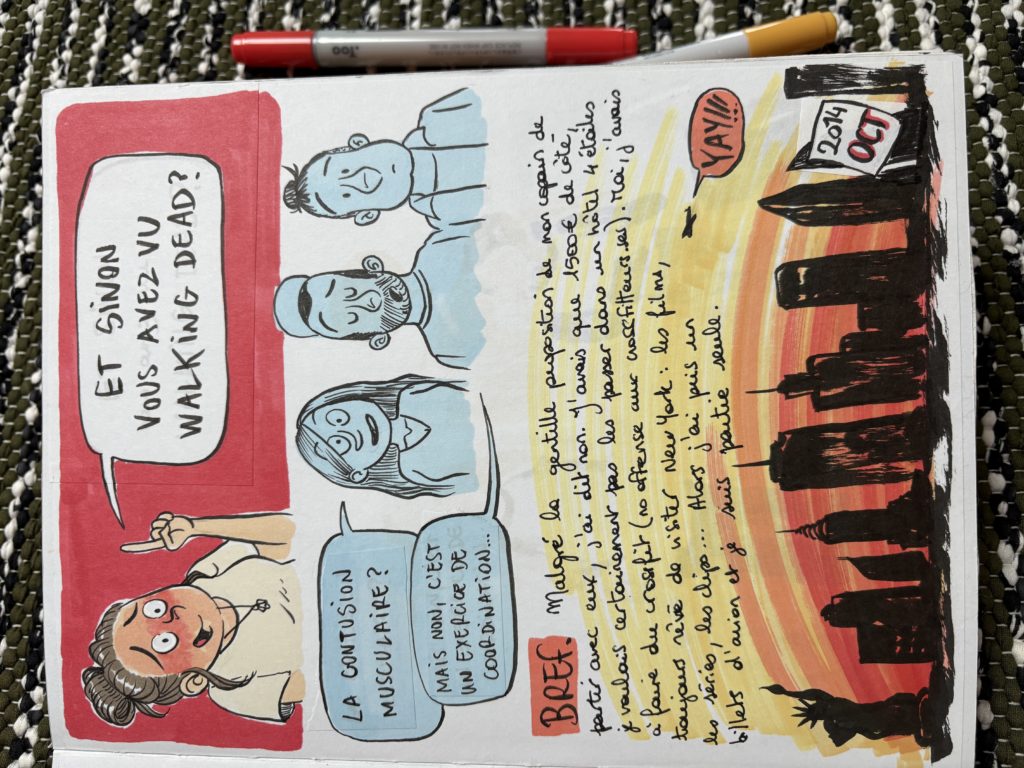 ET SINON
VOUS AVEZ VU
WALKING DEAD?
LA CONTUSION
MUSCULAIRE?
MAIS NON, C'EST
UN EXERCICE DE
COORDINATION...
BREF. Malgré la gentille proposition de mon copain de
partir avec eux, j'ai dit non. J'avais que 1500€ de côté,
je voulais certainement pas les passer dans un hôtel 4 étoiles
à faire du crossfit (no offense aux crossfitteurs.ses). Moi, j'avais
toujours rêvé de visiter New York: les films,
les séries, les clips... Alors j'ai pris un
billet d'avion et je suis partie seule.
YAY!!!
2014
OCT